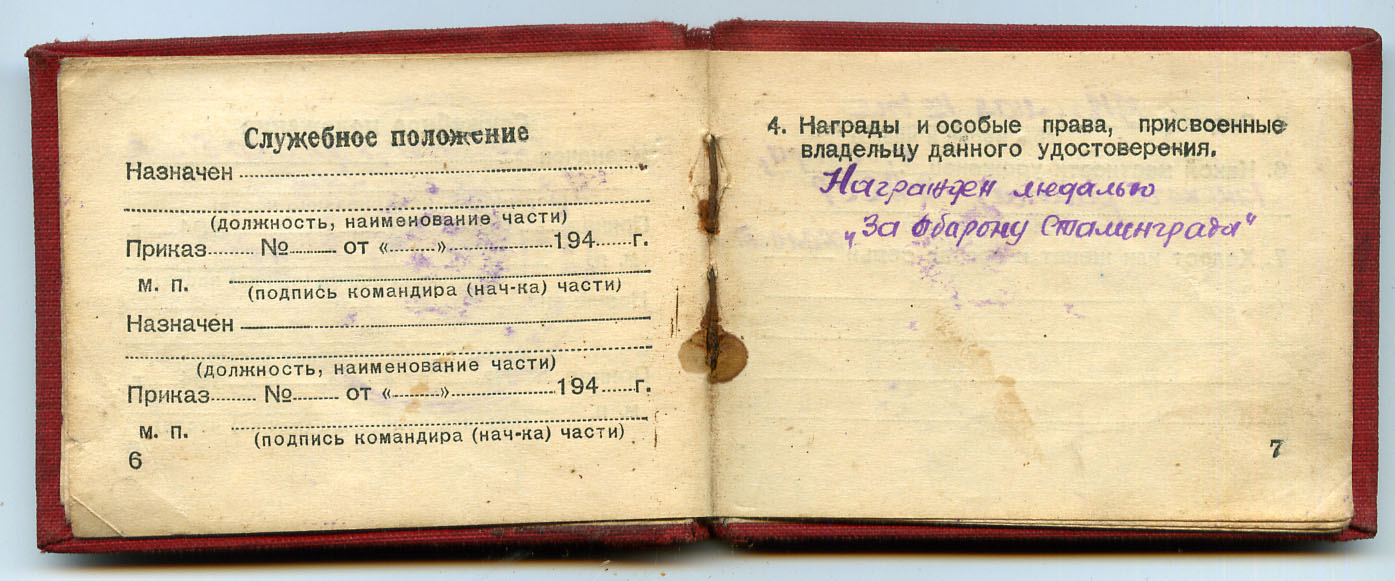 Служебное положение
Назначен
(должность, наименование части)
Приказ........ №........ от «........»....................194......г.
м. п.
(подпись командира (нач-ка) части)
Назначен
(должность, наименование части)
Приказ........ №........ от «........»....................194......г.
м. п.
(подпись командира (нач-ка) части)
6
4. Награды и особые права, присвоенные
владельцу данного удостоверения.
Награжден медалью
„За оборону Сталинграда"
7